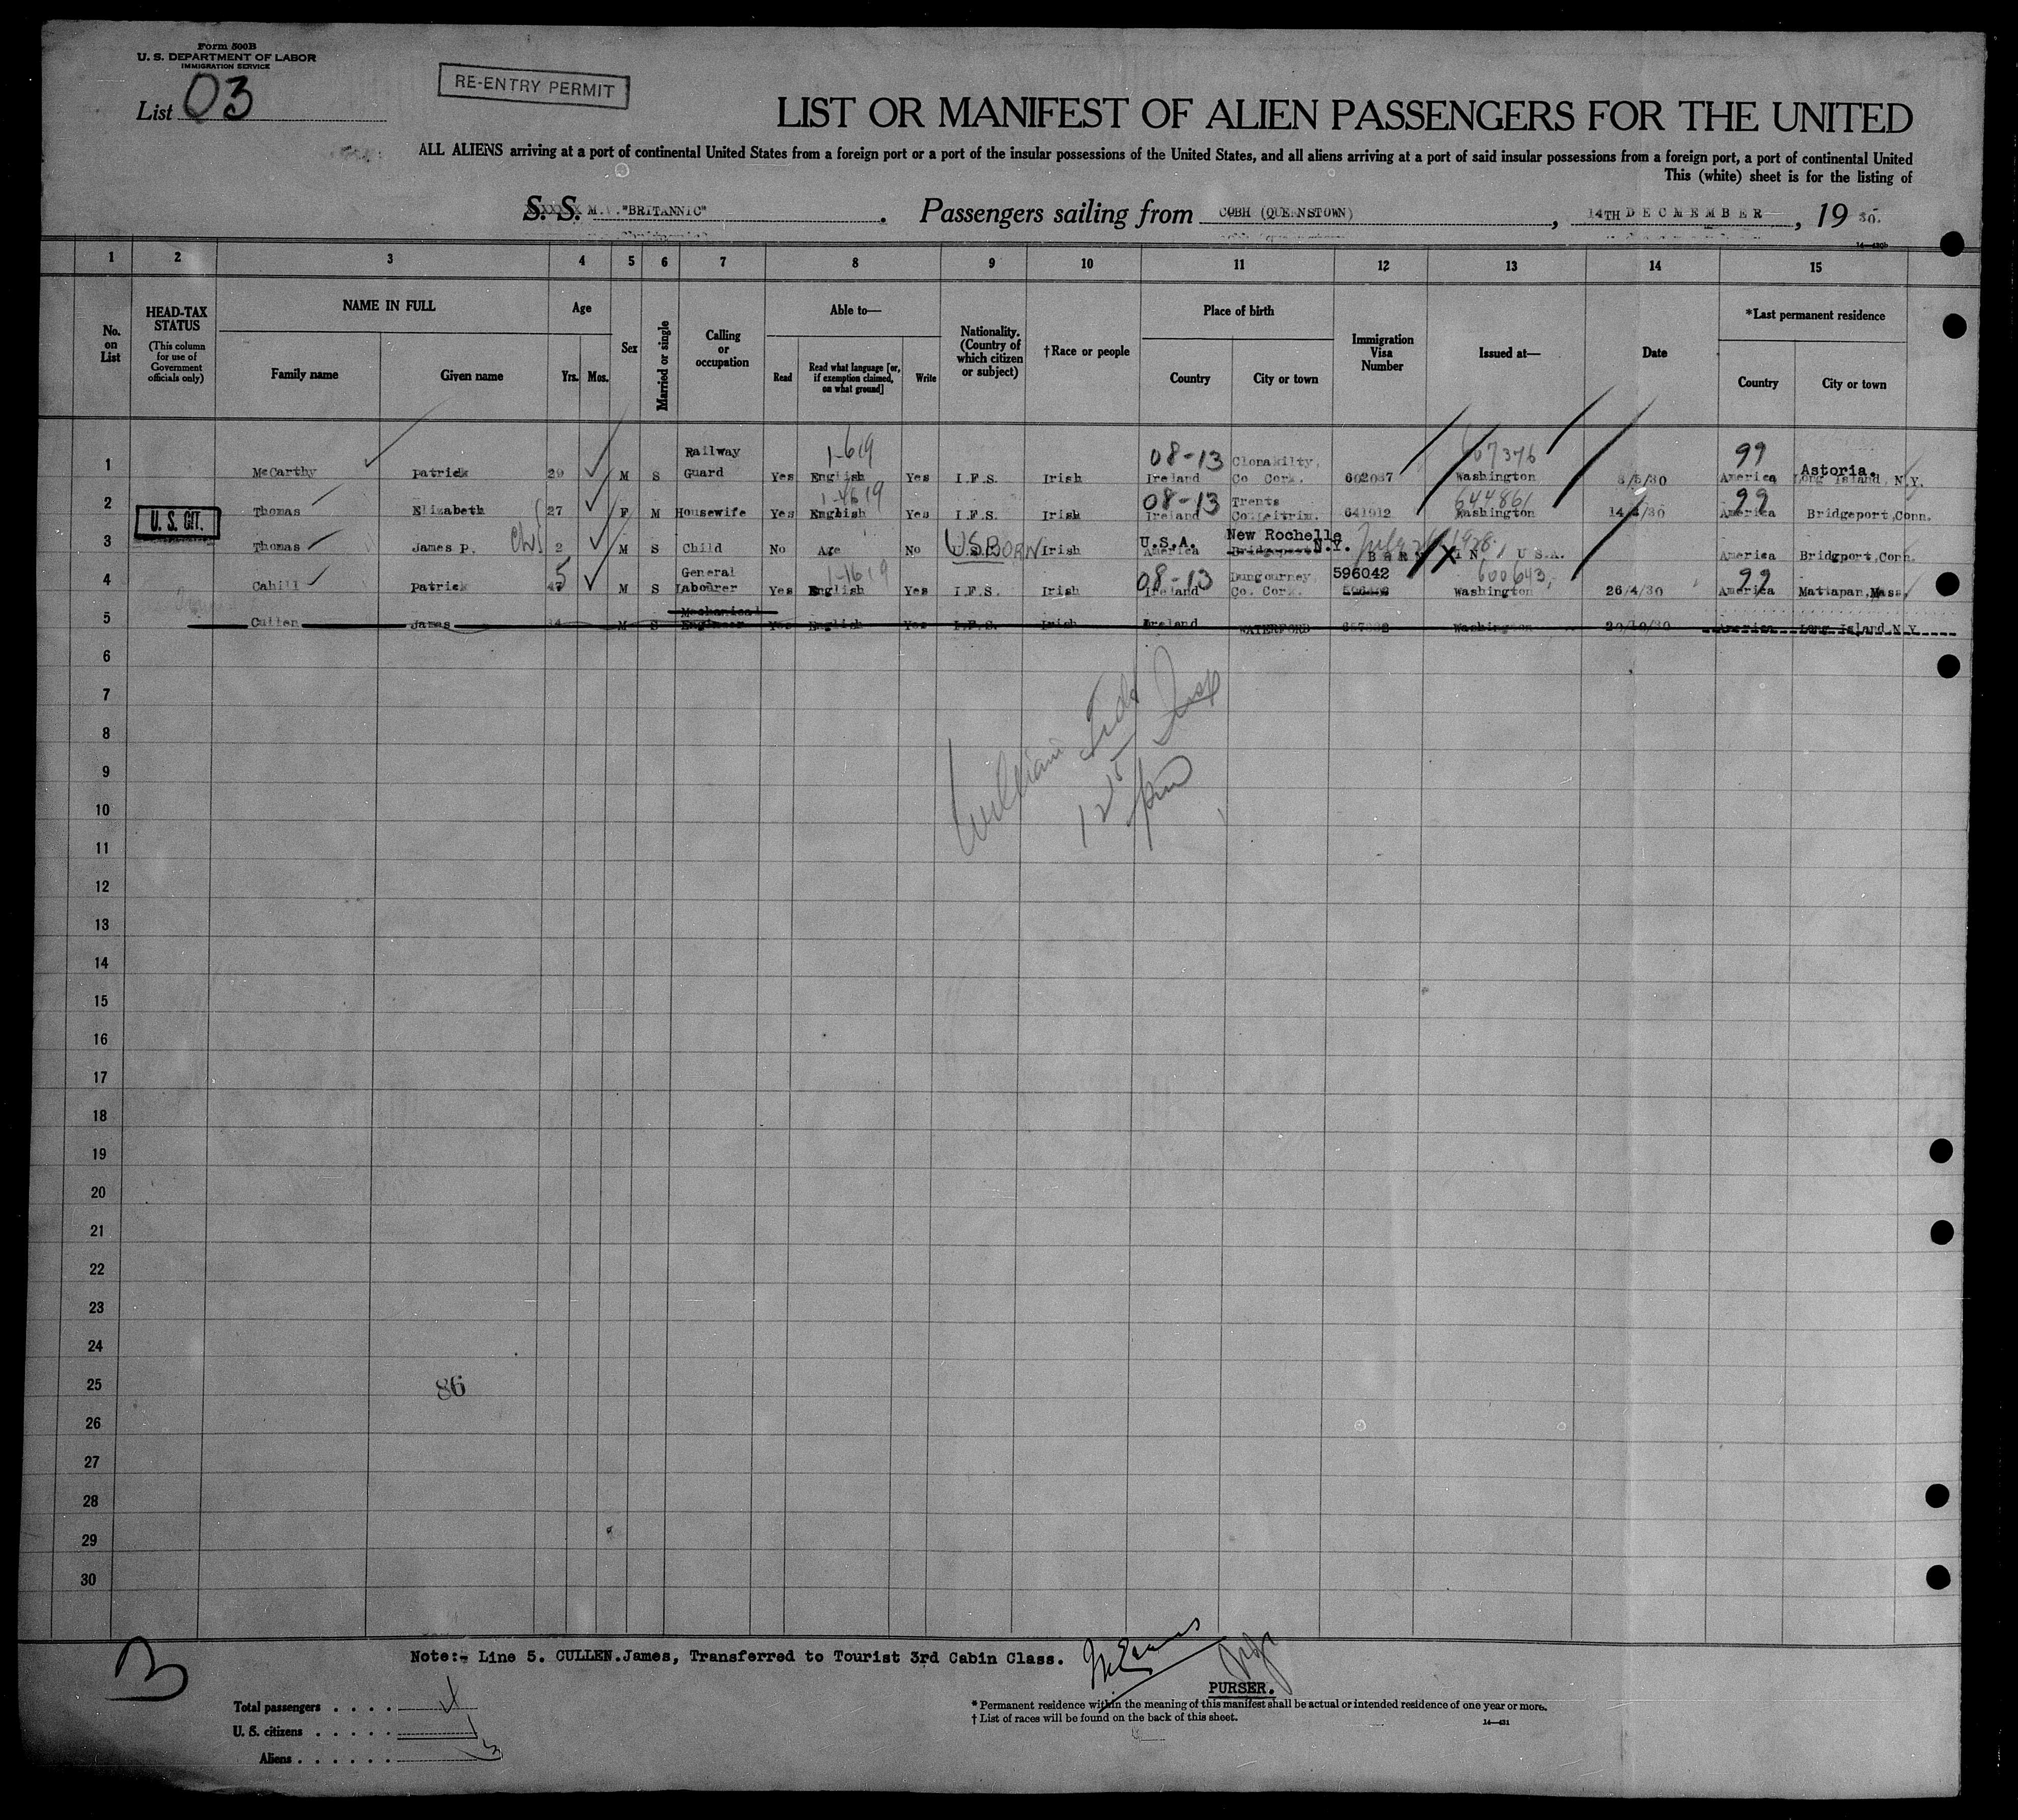 Form 500B
U. S. DEPARTMENT OF LABOR
IMMIGRATION SERVICE
List 03
RE-ENTRY PERMIT
LIST OR MANIFEST OF ALIEN PASSENGERS FOR THE UNITED
ALL ALIENS arriving at a port of continental United States from a foreign port or a port of the insular possessions of the United States, and all aliens arriving at a port of said insular possessions from a foreign port, a port of continental United
This (white) sheet is for the listing of
S. S. M.V."BRITANNIC". Passengers sailing from COBH (QUEENSTOWN), 14TH DECMEMBER, 19 30.
14—430b
1 2 3 4 5 6 7 8 9 10 11 12 13 14 15
No. on List
HEAD-TAX STATUS (This column for use of Government officials only)
NAME IN FULL
Family name
Given name
Age
Yrs. Mos.
Sex
Married or single
Calling or occupation
Able to—
Read
Read what language [or, if exemption claimed, on what ground]
Write
Nationality. (Country of which citizen or subject)
†Race or people
Place of birth
Country
City or town
Immigration Visa Number
Issued at—
Date
*Last permanent residence
Country
City or town
1 McCarthy Patrick 29 M S Railway Guard Yes 1-619 English Yes I.F.S. Irish 08-13 Ireland Clonakilty, Co Cork. 602087 607376 Washington 8/5/30 99 America Astoria. Long Island N.Y.
2 Thomas Elizabeth 27 F M Housewife Yes 1-1619 English Yes I.F.S. Irish 08-13 Ireland Trents Co.Leitrim. 641912 644861 Washington 99 America Bridgeport,Conn.
U. S. CIT.
3 Thomas James P. 2 M S Child No Age No US BORN Irish U.S.A. America New Rochelle N.Y. Bridgeport July 1928 BORN IN U S.A. America Bridgport,Conn.
4 Cahill Patrick 47 5 M S General Labourer Yes 1-1619 English Yes I.F.S. Irish 08-13 Ireland Dungourney, Co. Cork. 596042 600643, Washington 26/4/30 99 America Mattapan,Mass.
5 Cullen James 34 M S Mechanical Engineer Yes English Yes I.F.S. Irish Ireland WATERFORD Washington 20/10/30 America Long Island N.Y.
6
7
8
William Todd Insp
9
10
12 15 pm
11
12
13
14
15
16
17
18
19
20
21
22
23
24
25
86
26
27
28
29
30
Note:- Line 5. CULLEN.James, Transferred to Tourist 3rd Cabin Class.
PURSER.
B
Total passengers . . . . 4
U. S. citizens . . . . . 1
Aliens . . . . . . 3
* Permanent residence within the meaning of this manifest shall be actual or intended residence of one year or more.
† List of races will be found on the back of this sheet.
14—431